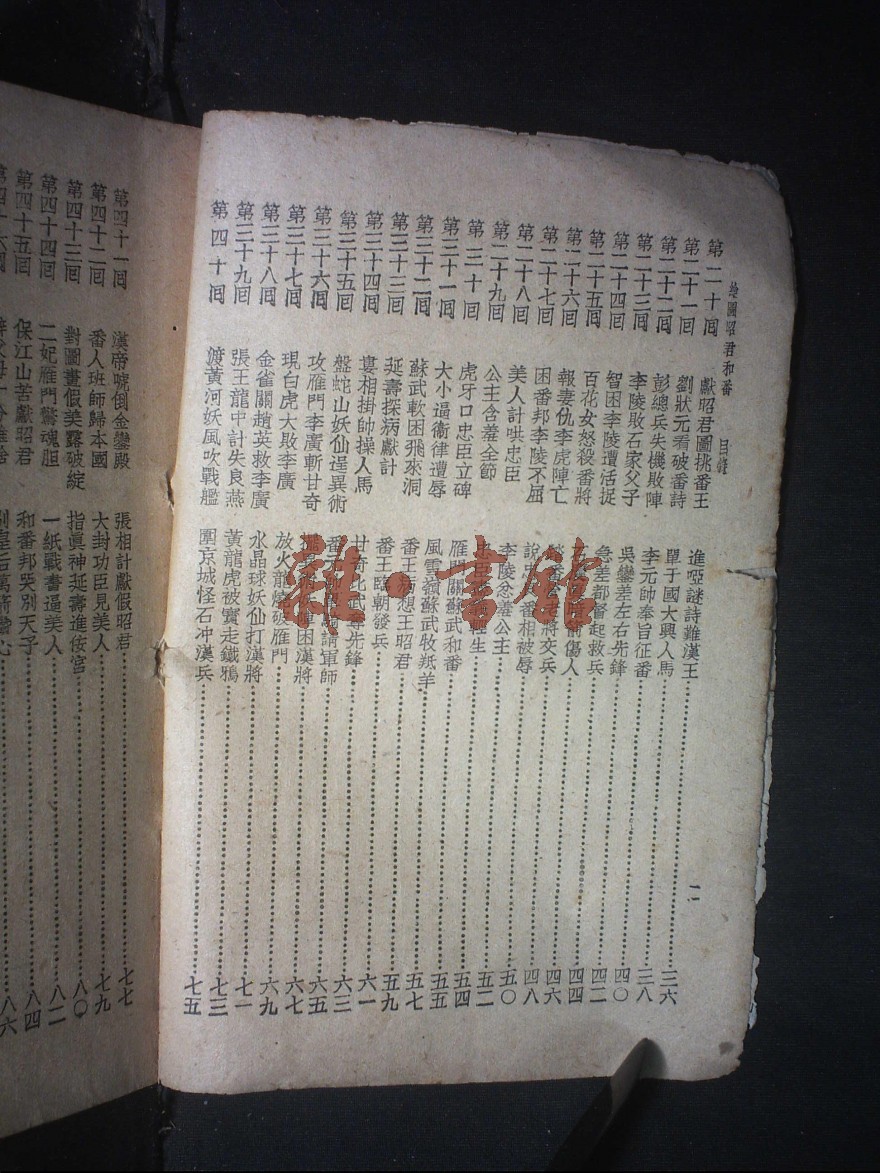 繪圖昭君和番 目錄 二
第二十回 獻昭君圖挑番王 進啞謎詩難漢王 三六
第二十一回 劉狀元看破番詩 單于國大興人馬
第二十二回 彭總兵失機敗陣 李元帥奉旨征番 三八
第二十三回 李陵敗石家父子 吳鑾差左右先鋒 四〇
第二十四回 智困李陵遭活捉 急差都督起救兵 四二
第二十五回 百花女怒殺番將 傷人 四四
第二十六回 報妻仇李虎陣亡 老將交兵 四六
第二十七回 困番邦李陵不屈 說 番相被辱 四八
第二十八回 美人計哄忠臣 李陵忿羞公主 五〇
第二十九回 公主含羞全節 輕生 五二
第三十回 虎牙口忠臣立碑 雁門關蘇武和番 五四
第三十一回 大小逼衛律遭辱 風雪嶺蘇武牧羝羊 五五
第三十二回 蘇武軟困飛來洞 番王病想王昭君 五七
第三十三回 延壽探病獻計 番王臨朝發兵 五九
第三十四回 婁相掛帥操人馬 甘奇比武奪先鋒 六一
第三十五回 盤蛇山妖仙逞異術 番 請軍師 六三
第三十六回 攻雁門李廣斬甘奇 陣困漢將 六五
第三十七回 現白虎大敗李廣 放火龍燒破雁門 六七
第三十八回 金雀關趙英救李廣 水晶球妖仙打漢將 六九
第三十九回 張王龍中計失良燕 黃龍虎被寳走鐵鴉 七一
第四十回 渡黃河妖風吹戰艦 圍京城怪石冲漢兵 七三
七五
第四十一回 漢帝唬倒金鑾殿 張相計獻假昭君 七七
第四十二回 番人班師歸本國 大封功臣見美人 七九
第四十三回 對圖畫假美露破綻 指眞神延壽進佞宮 八〇
第四十四回 二妃雁門驚魂胆 一紙戰書逼美人 八二
第四十五回 保江山苦獻昭君 和番邦哭別天子 八四
第四十六回 八六
雜·書館